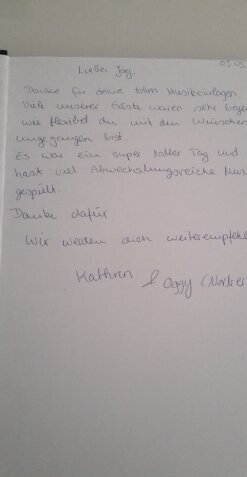 03.05
Lieber Jog,
Danke für deine tollen Musikeinlagen
Viele unserer Gäste waren sehr begei
wie flexibel du mit den Wünschen
umgegangen bist.
Es war ein super toller Tag und
hast viel Abwechslungsreiche Mus
gespielt.
Danke dafür
Wir werden dich weiterempfehl
Kathren & Oggy